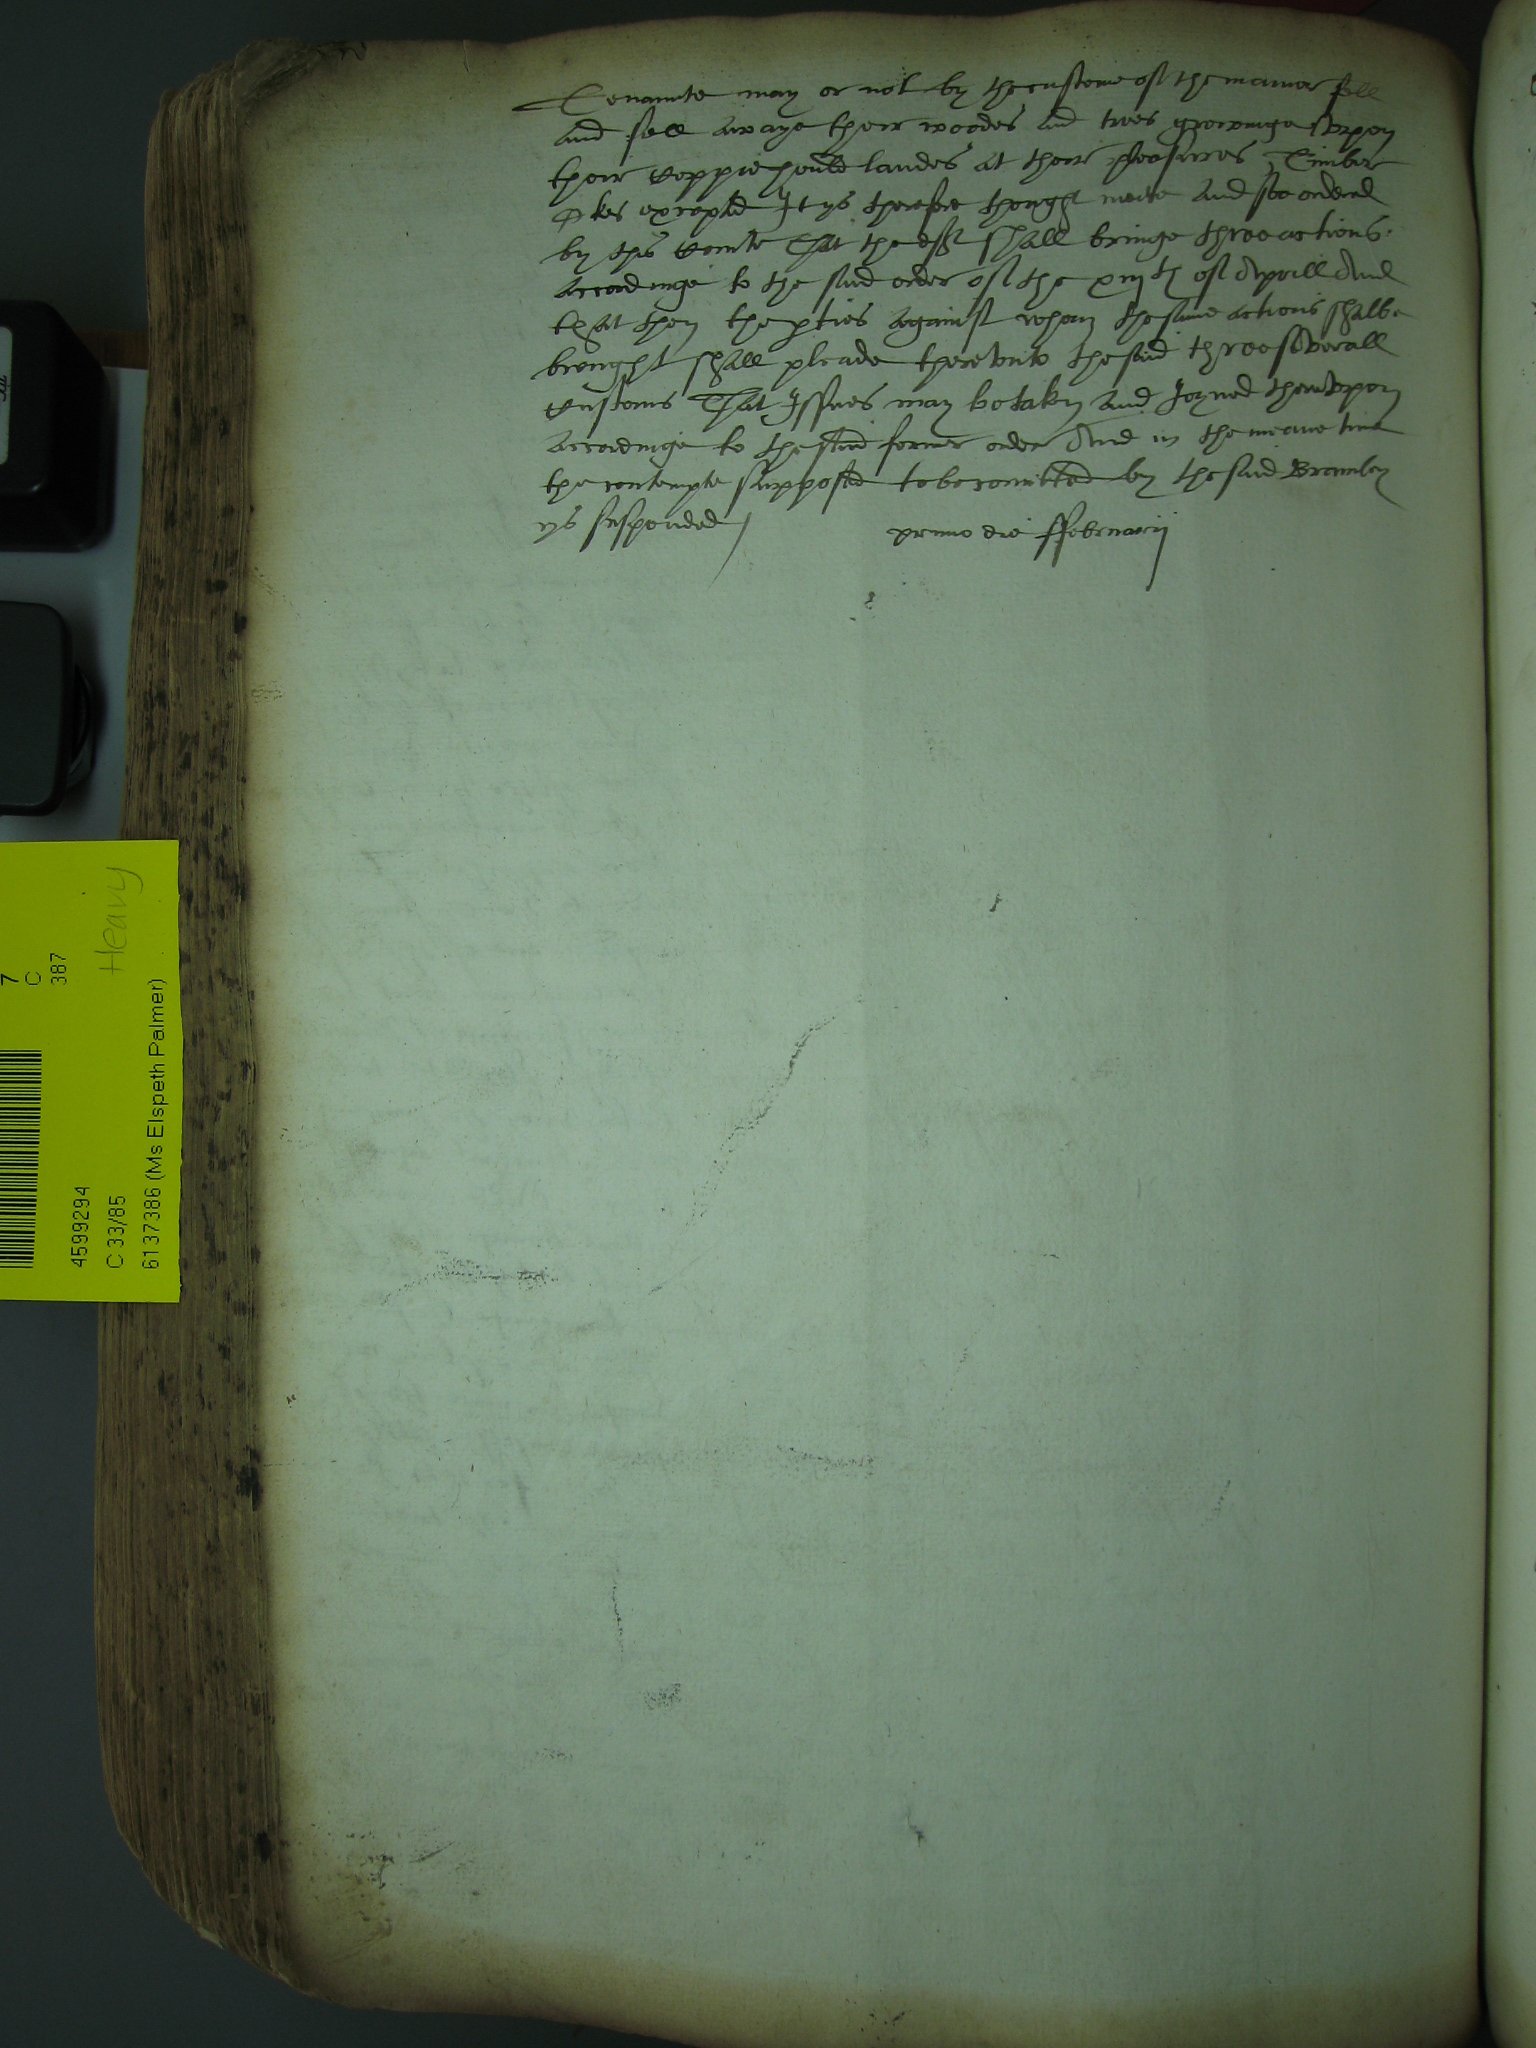 Tenannte may or not by the custome of the mannor fell
And sell awaye their woodes and trees growinge uppon
their Coppiehould landes at their pleasures Timber
Okes excepted It ys therefore thought meete And soe ordered
by this Courte That the def shall bringe three actions
Accordinge to the said order of the xiijth of Aprill And
that then the pties against whom the same actions shalbe
brought shall pleade therevnto the said three severall
Customs That Issues may be taken and Joyned therevppon
Accordinge to the said former order And in the meane time
the contempte supposed to be comitted by the said Bramley
ys suspended / primo die ffebruarij
7
C
387
Heavy
4599294
C 33/85
6137386 (Ms Elspeth Palmer)